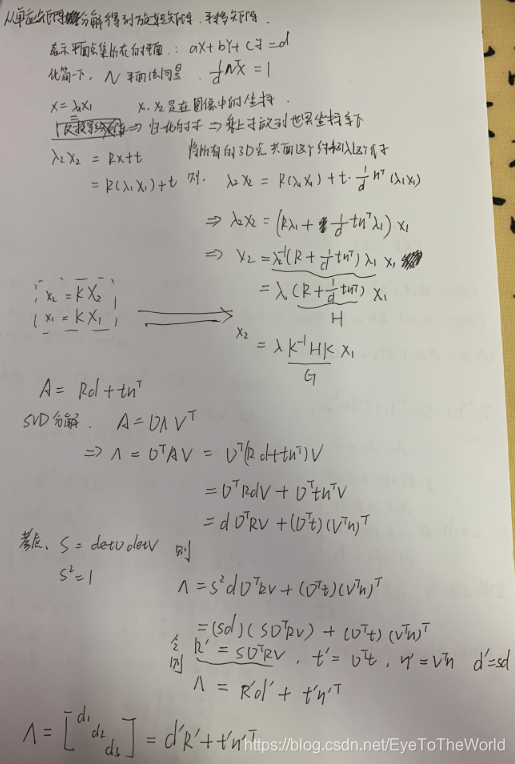 从单应矩阵分解得到旋转矩阵、平移矩阵.
表示平面点集所在的平面: aX+bY+cZ=d
化简一下, N 平面法向量. 1/d NᵀX = 1
X=λ₁x₁ x₁ x₂是在图像中的坐标.
⇒ 归一化的坐标 ⇒
λ₂x₂ = RX+t
= R(λ₁x₁)+t 则, λ₂x₂ = R(λ₁x₁)+t·1/d nᵀ(λ₁x₁)
⇒ λ₂x₂ = (Rλ₁+ 1/d tnᵀλ₁) x₁
⇒ x₂ = λ₂⁻¹(R+1/d tnᵀ)λ₁ x₁
= λ (R+1/d tnᵀ) x₁
H
x₂ = KX₂
x₁ = KX₁
x₂ = λ K⁻¹HK x₁
G
A = Rd+tnᵀ
SVD分解. A=UΛVᵀ
⇒ Λ=UᵀAV = Uᵀ(Rd+tnᵀ)V
= UᵀRdV + UᵀtnᵀV
= dUᵀRV + (Uᵀt)(Vᵀn)ᵀ
考虑, S = detU detV 则
S²=1
Λ = S²dUᵀRV + (Uᵀt)(Vᵀn)ᵀ
= (Sd)(SUᵀRV) + (Uᵀt)(Vᵀn)ᵀ
令 R' = SUᵀRV, t'=Uᵀt, n'=Vᵀn d'=sd
则 Λ = R'd' + t'n'ᵀ
Λ = [d₁ d₂ d₃] = d'R'+t'n'ᵀ
https://blog.csdn.net/EyeToTheWorld